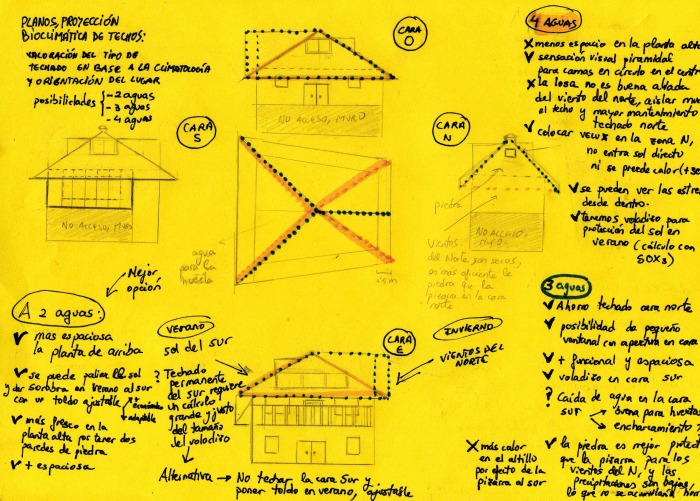 PLANOS, PROYECCIÓN
BIOCLIMÁTICA DE TECHOS:
VALORACIÓN DEL TIPO DE
TECHADO EN BASE A LA CLIMATOLOGÍA
Y ORIENTACIÓN DEL LUGAR
posibilidades
- 2 aguas
- 3 aguas
- 4 aguas
CARA
O
NO ACCESO, MURO
CARA
S
NO ACCESO, MURO
CARA
N
piedra
NO ACCESO,
MURO
Vientos
del Norte son secos,
es más eficiente la
piedra que la
pizarra en la cara
norte
agua
para la
huerta
Mejor
opción
A 2 aguas:
✓ mas espaciosa
la planta de arriba
✓ se puede paliar el sol
y dar sombra en verano al sur
con un toldo ajustable
+ económico
+ adaptable
✓ más fresco en la
planta alta por tener dos
paredes de piedra
✓ + espaciosa
VERANO
sol del sur
? Techado
permanente
del sur requiere
un cálculo
grande y justo
del tamaño
del voladizo
Alternativa → No techar la cara Sur y
poner toldo en verano, ajustable
CARA
E
INVIERNO
VIENTOS DEL
NORTE
X más calor
en el altillo
por efecto de la
pizarra al sur
4 AGUAS
X menos espacio en la planta alta
✓ sensación visual piramidal
para camas en círculo en el cent
X la losa no es buena aliada
del viento del norte, aislar
el techo y mayor mantenimiento
techado norte
✓ colocar VELUX en la zona N,
no entra sol directo
ni se pierde calor
✓ se pueden ver las estre
desde dentro.
✓ tenemos voladizo para
protección del sol en
verano (cálculo con
3 aguas
✓ Ahorro techado cara norte
✓ posibilidad de pequeño
ventanal con apertura en cara
✓ + funcional y espaciosa
✓ voladizo en cara sur
? Caída de agua en la cara
sur
buena para huerta
encharcamiento?
✓ la piedra es mejor protect
que la pizarra para los
vientos del N, y las
precipitaciones son bajas,
lo que no se acumulará